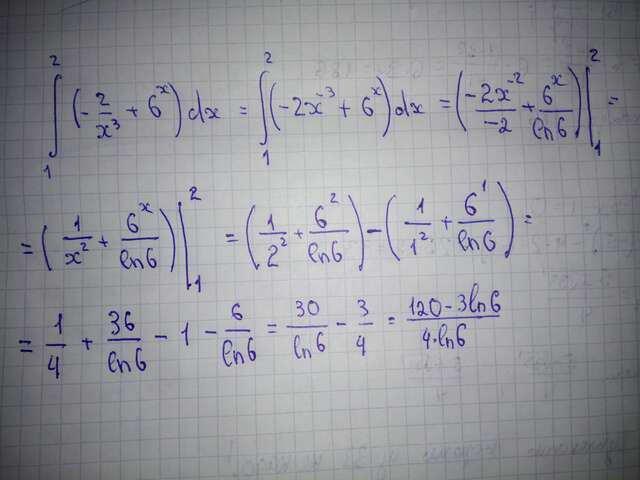 ∫₁² (-2/x³ + 6ˣ) dx = ∫₁² (-2x⁻³ + 6ˣ) dx = (-2x⁻²/-2 + 6ˣ/ln6) |₁² =
= (1/x² + 6ˣ/ln6) |₁² = (1/2² + 6²/ln6) - (1/1² + 6¹/ln6) =
= 1/4 + 36/ln6 - 1 - 6/ln6 = 30/ln6 - 3/4 = (120-3ln6)/(4·ln6)